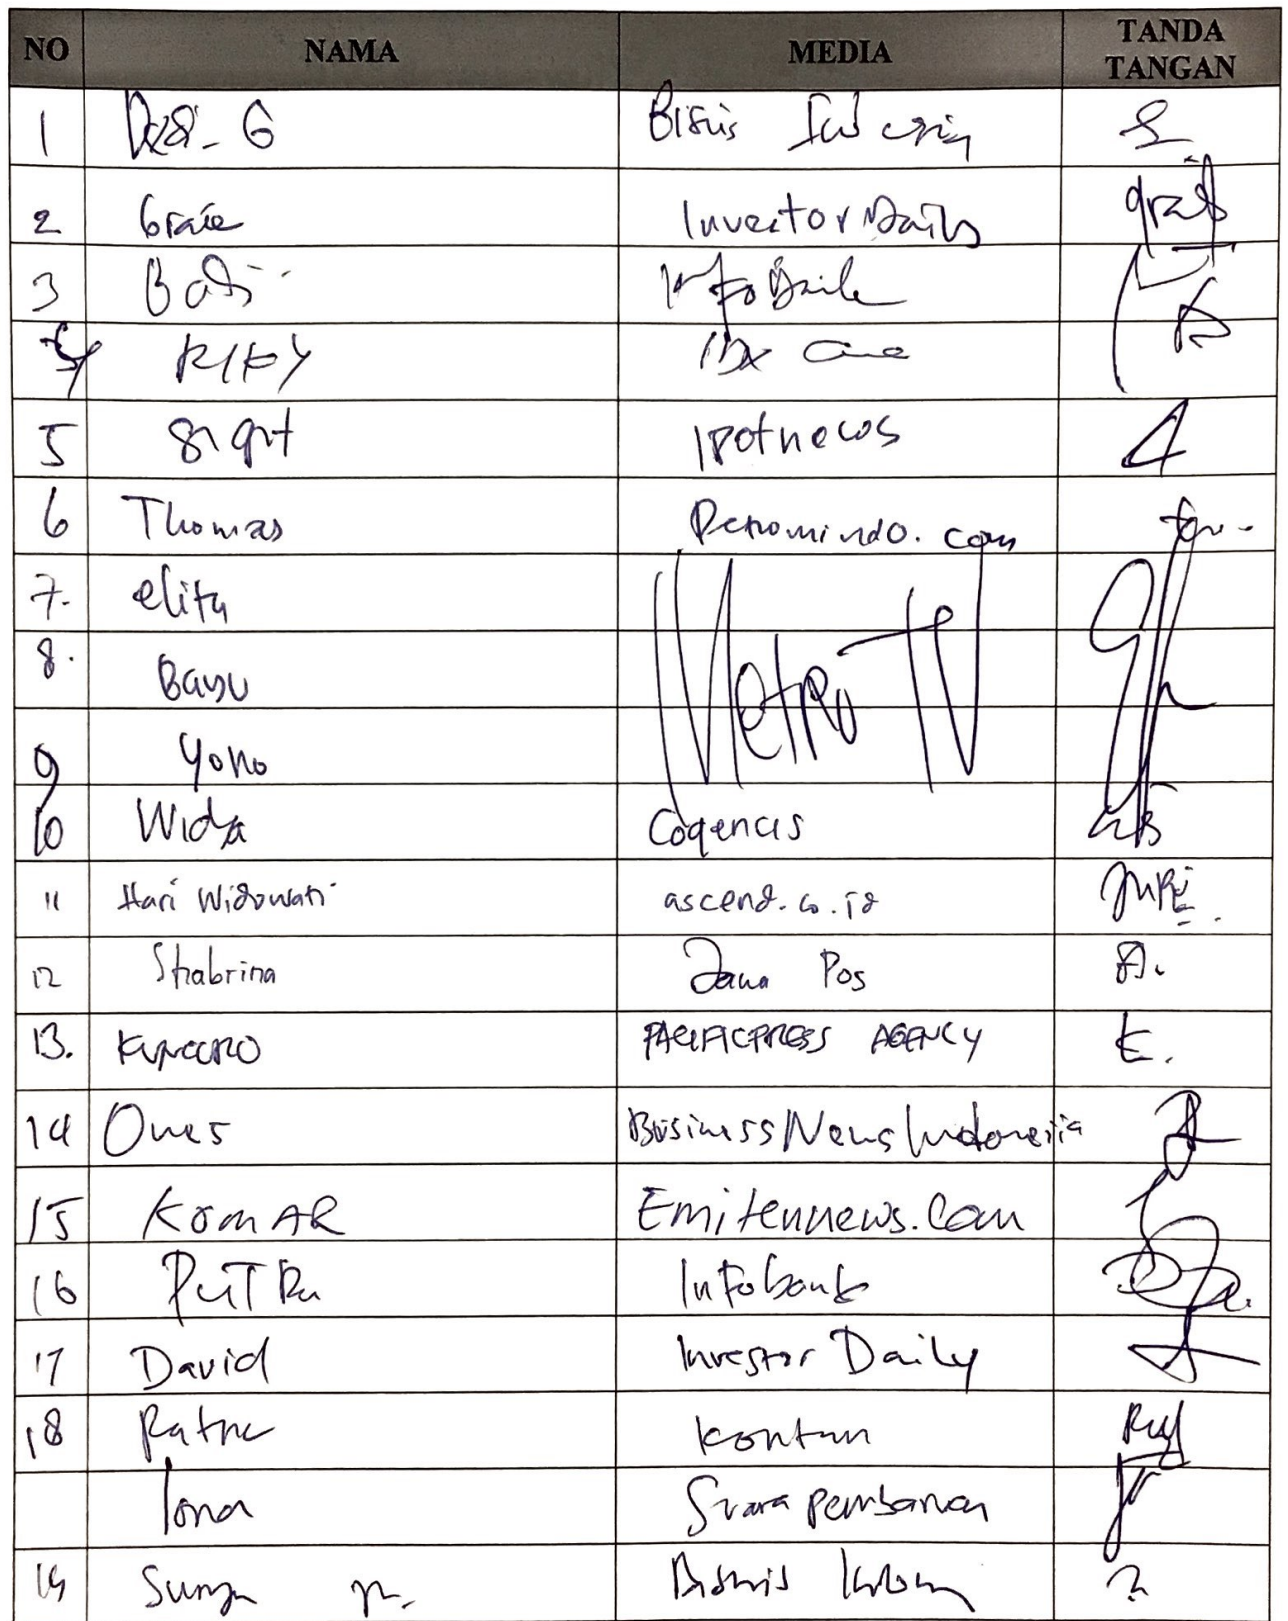 NO NAMA MEDIA TANDA TANGAN
1 Bisnis
2 Investor Daily
3 Budi
RIKY IDX
5 Sigit Ipotnews
6 Thomas .com
7. elita Metro TV
8. Bayu
9 Yono
10 Wida Coqencis
11 Hari Widowati ascend.co.id
12 Shabrina Jawa Pos
13. KUNCORO PACIFICPRESS AGENCY E.
14 Ones Business News Indonesia
15 KomAR Emitennews.Com
16 PUTRa Infobank
17 David Investor Daily
18 Ratna kontan
Iona Suara pembaruan
19 Surya Bisnis